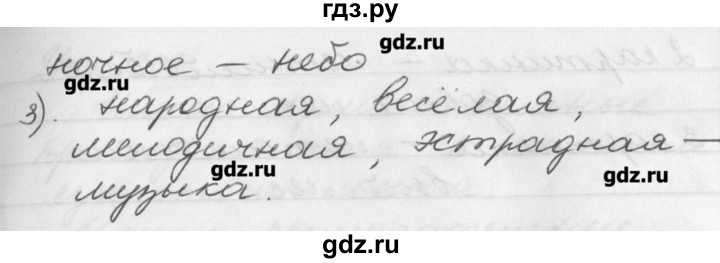 гдз.ру
ночное – небо
gdz.ru
gdz.ru
3). народная, весёлая,
gdz.ru
мелодичная, эстрадная –
музыка.
gdz.ru
gdz.ru